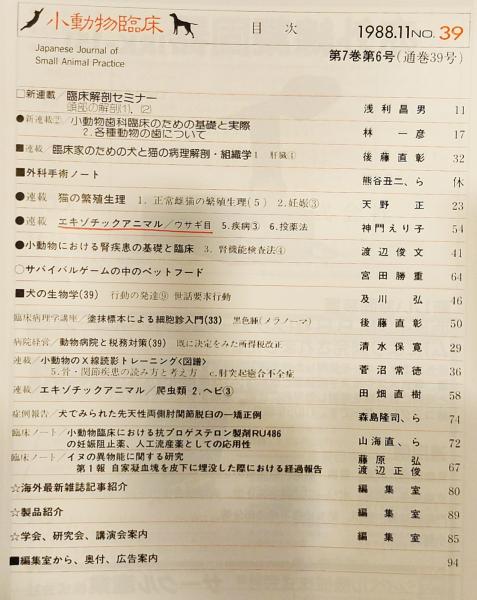 小動物臨床 目次 1988.11 NO. 39
Japanese Journal of
Small Animal Practice
第7巻第6号(通巻39号)
□新連載/臨床解剖セミナー
頭部の解剖(1)．(2) 浅利昌男 11
●新連載②/小動物歯科臨床のための基礎と実際
2.各種動物の歯について 林一彦 17
■連載/臨床家のための犬と猫の病理解剖・組織学 1 肝臓④ 後藤直彰 32
■外科手術ノート 熊谷丑二、ら 休
●連載 猫の繁殖生理 1. 正常雌猫の繁殖生理(5) 2.妊娠③ 天野正 23
●連載 エキゾチックアニマル/ウサギ目 5.疾病③ 6.投薬法 神門えり子 54
●小動物における腎疾患の基礎と臨床 3. 腎機能検査法④ 渡辺俊文 41
○サバイバルゲームの中のペットフード 宮田勝重 64
■犬の生物学(39) 行動の発達⑨ 世話要求行動 及川弘 46
臨床病理学講座/塗抹標本による細胞診入門(33) 黒色腫(メラノーマ) 後藤直彰 50
病院経営/動物病院と税務対策(39) 既に決定をみた所得税改正 清水保寛 29
連載/小動物のX線読影トレーニング〈図譜〉
5.骨・関節疾患の読み方と考え方 c.肘突起癒合不全症 菅沼常徳 36
連載/エキゾチックアニマル/爬虫類 2.ヘビ③ 田畑直樹 58
症例報告/犬でみられた先天性両側肘関節脱臼の一矯正例 森島隆司、ら 74
臨床ノート/小動物臨床における抗プロゲステロン製剤RU486
の妊娠阻止薬、人工流産薬としての応用性 山海直、ら 72
臨床ノート/イヌの異物能に関する研究 藤原弘
第1報 自家凝血塊を皮下に埋没した際における経過報告 渡辺正俊 67
☆海外最新雑誌記事紹介 編集室 80
☆製品紹介 編集室 89
☆学会、研究会、講演会案内 編集室 85
■編集室から、奥付、広告案内 94